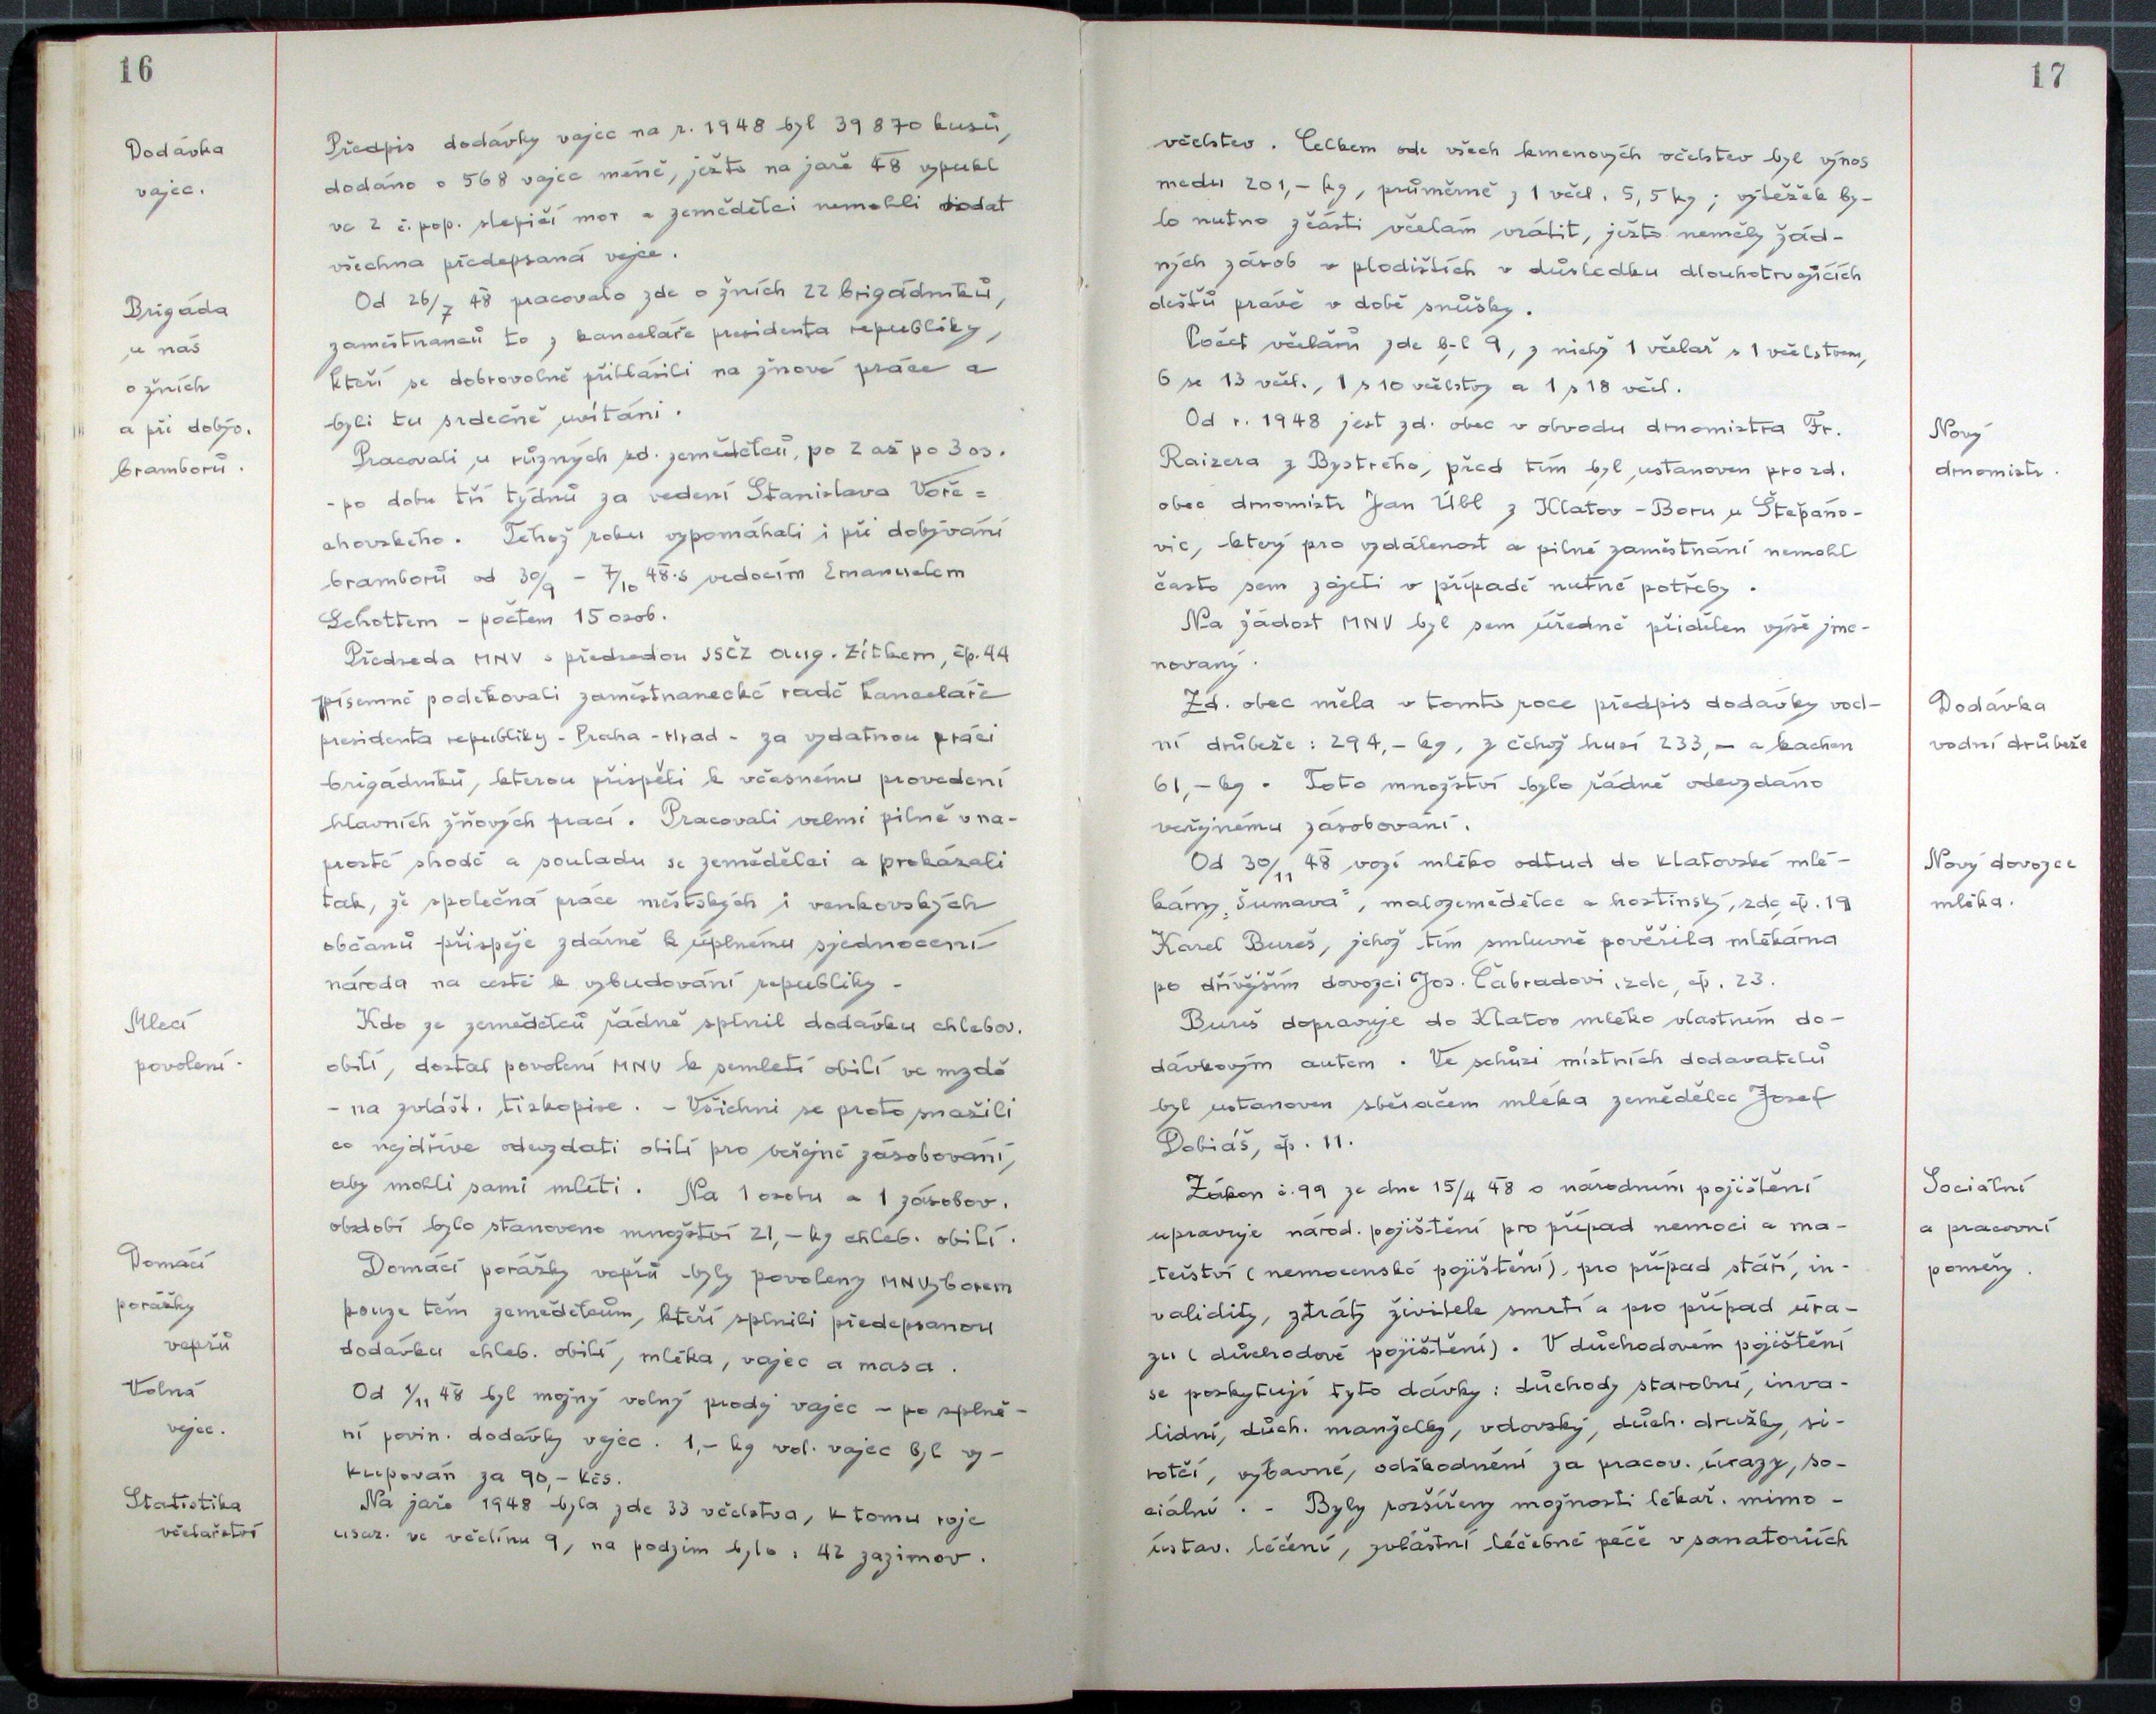 16
Dodávka
vajec.
Předpis dodávky vajec na r. 1948 byl 39 870 kusů,
dodáno o 568 vajec méně, ježto na jaře 48 vypukl
ve 2 č. pop. slepičí mor a zemědělci nemohli dodat
všechna předepsaná vejce.
Brigáda
u nás
o žních
a při dobýv.
bramborů.
Od 26/7 48 pracovalo zde o žních 22 brigádníků,
zaměstnanců to z kanceláře presidenta republiky,
kteří se dobrovolně přihlásili na žňové práce a
byli tu srdečně uvítáni.
Pracovali u různých zd. zemědělců, po 2 až po 3 os.
- po dobu tří týdnů za vedení Stanislava Voře=
chovského. Téhož roku vypomáhali i při dobývání
bramborů od 30/9 - 7/10 48 s vedoucím Emanuelem
Schottem - počtem 15 osob.
Předseda MNV s předsedou JSČZ Aug. Zítkem, čp. 44
písemně poděkovali zaměstnanecké radě kanceláře
presidenta republiky - Praha - Hrad - za vydatnou práci
brigádníků, kterou přispěli k včasnému provedení
hlavních žňových prací. Pracovali velmi pilně v na-
prosté shodě a souladu se zemědělci a prokázali
tak, že společná práce městských i venkovských
občanů přispěje zdárně k úplnému sjednocení
národa na cestě k vybudování republiky -
Mlecí
povolení.
Kdo ze zemědělců řádně splnil dodávku chlebov.
obilí, dostal povolení MNV k semletí obilí ve mzdě
- na zvlášt. tiskopise. - Všichni se proto snažili
co nejdříve odevzdati obilí pro veřejné zásobování,
aby mohli sami mlíti. Na 1 osobu a 1 zásobov.
období bylo stanoveno množství 21,- kg chleb. obilí.
Domácí
porážky
vepřů
Domácí porážky vepřů byly povoleny MNVýborem
pouze těm zemědělcům, kteří splnili předepsanou
dodávku chleb. obilí, mléka, vajec a masa.
Volná
vejce.
Od 1/11 48 byl možný volný prodej vajec - po splně-
ní povin. dodávky vejec. 1,- kg vol. vajec byl vy-
kupován za 90,- Kčs.
Statistika
včelařství
Na jaře 1948 byla zde 33 včelstva, k tomu roje
usaz. ve včelínu 9, na podzim bylo: 42 zazimov.
17
včelstev. Celkem ode všech kmenových včelstev byl výnos
medu 201,- kg, průměrně z 1 včel. 5,5 kg; výtěžek by-
lo nutno zčásti včelám vrátit, ježto neměly žád-
ných zásob v plodištích v důsledku dlouhotrvajících
dešťů právě v době snůšky.
Počet včelařů zde byl 9, z nichž 1 včelař s 1 včelstvem,
6 se 13 včel., 1 s 10 včelstvy a 1 s 18 včel.
Nový
drnomistr.
Od r. 1948 jest zd. obec v obvodu drnomistra Fr.
Raizera z Bystrého, před tím byl ustanoven pro zd.
obec drnomistr Jan Úbl z Klatov - Boru u Štěpáno-
vic, který pro vzdálenost a pilné zaměstnání nemohl
často sem zajeti v případě nutné potřeby.
Na žádost MNV byl sem úředně přidělen výše jme-
novaný.
Dodávka
vodní drůbeže
Zd. obec měla v tomto roce předpis dodávky vod-
ní drůbeže: 294,- kg, z čehož husí 233,- a kachen
61,- kg. Toto množství bylo řádně odevzdáno
veřejnému zásobování.
Nový dovozce
mléka.
Od 30/11 48 vozí mléko odtud do klatovské mlé-
kárny „Šumava", malozemědělec a hostinský, zde, čp. 19
Karel Bureš, jehož tím smluvně pověřila mlékárna
po dřívějším dovozci Jos. Čabradovi, zde, čp. 23.
Bureš dopravuje do Klatov mléko vlastním do-
dávkovým autem. Ve schůzi místních dodavatelů
byl ustanoven sběračem mléka zemědělec Josef
Dobiáš, čp. 11.
Sociální
a pracovní
poměry.
Zákon č. 99 ze dne 15/4 48 o národním pojištění
upravuje národ. pojištění pro případ nemoci a ma-
teřství (nemocenské pojištění), pro případ stáří, in-
validity, ztráty živitele smrtí a pro případ úra-
zu (důchodové pojištění). V důchodovém pojištění
se poskytují tyto dávky: důchody starobní, inva-
lidní, důch. manželky, vdovský, důch. družky, si-
rotčí, výbavné, odškodnění za pracov. úrazy, so-
ciální. - Byly rozšířeny možnosti lékař. mimo -
ústav. léčení, zvláštní léčebné péče v sanatoriích